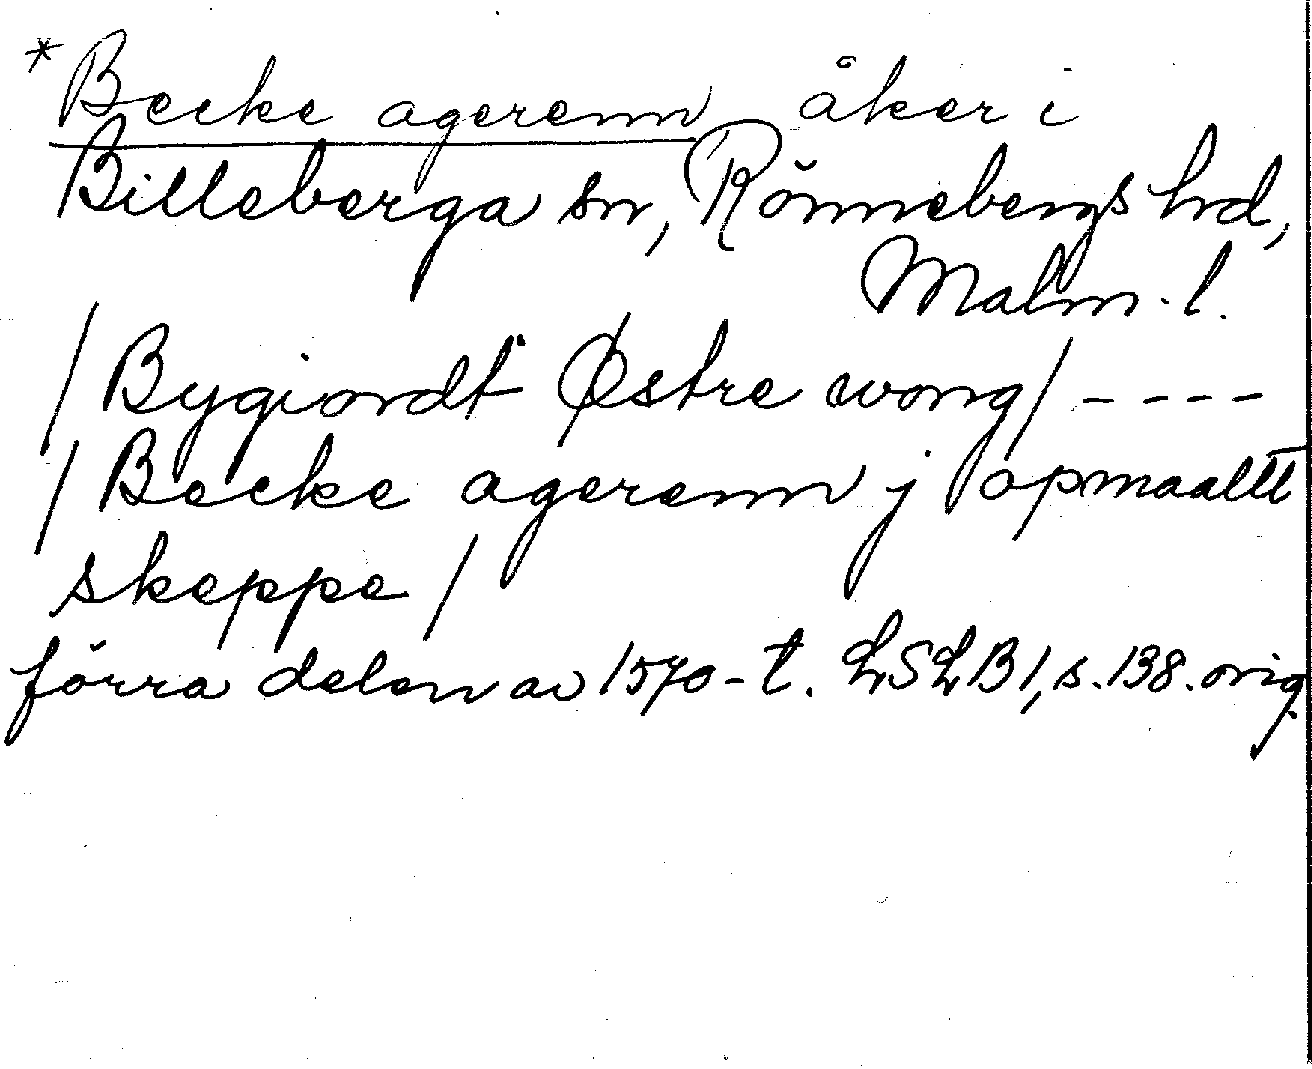 *Becke agerenn åker i
Billeberga sn, Rönnebergs hd,
Malm. l.
/Bygiordt Østre wong/ ----
/Becke agerenn j opmaaltt
skeppe/
förra delen av 1570-t. LSLB1, s. 138. orig.